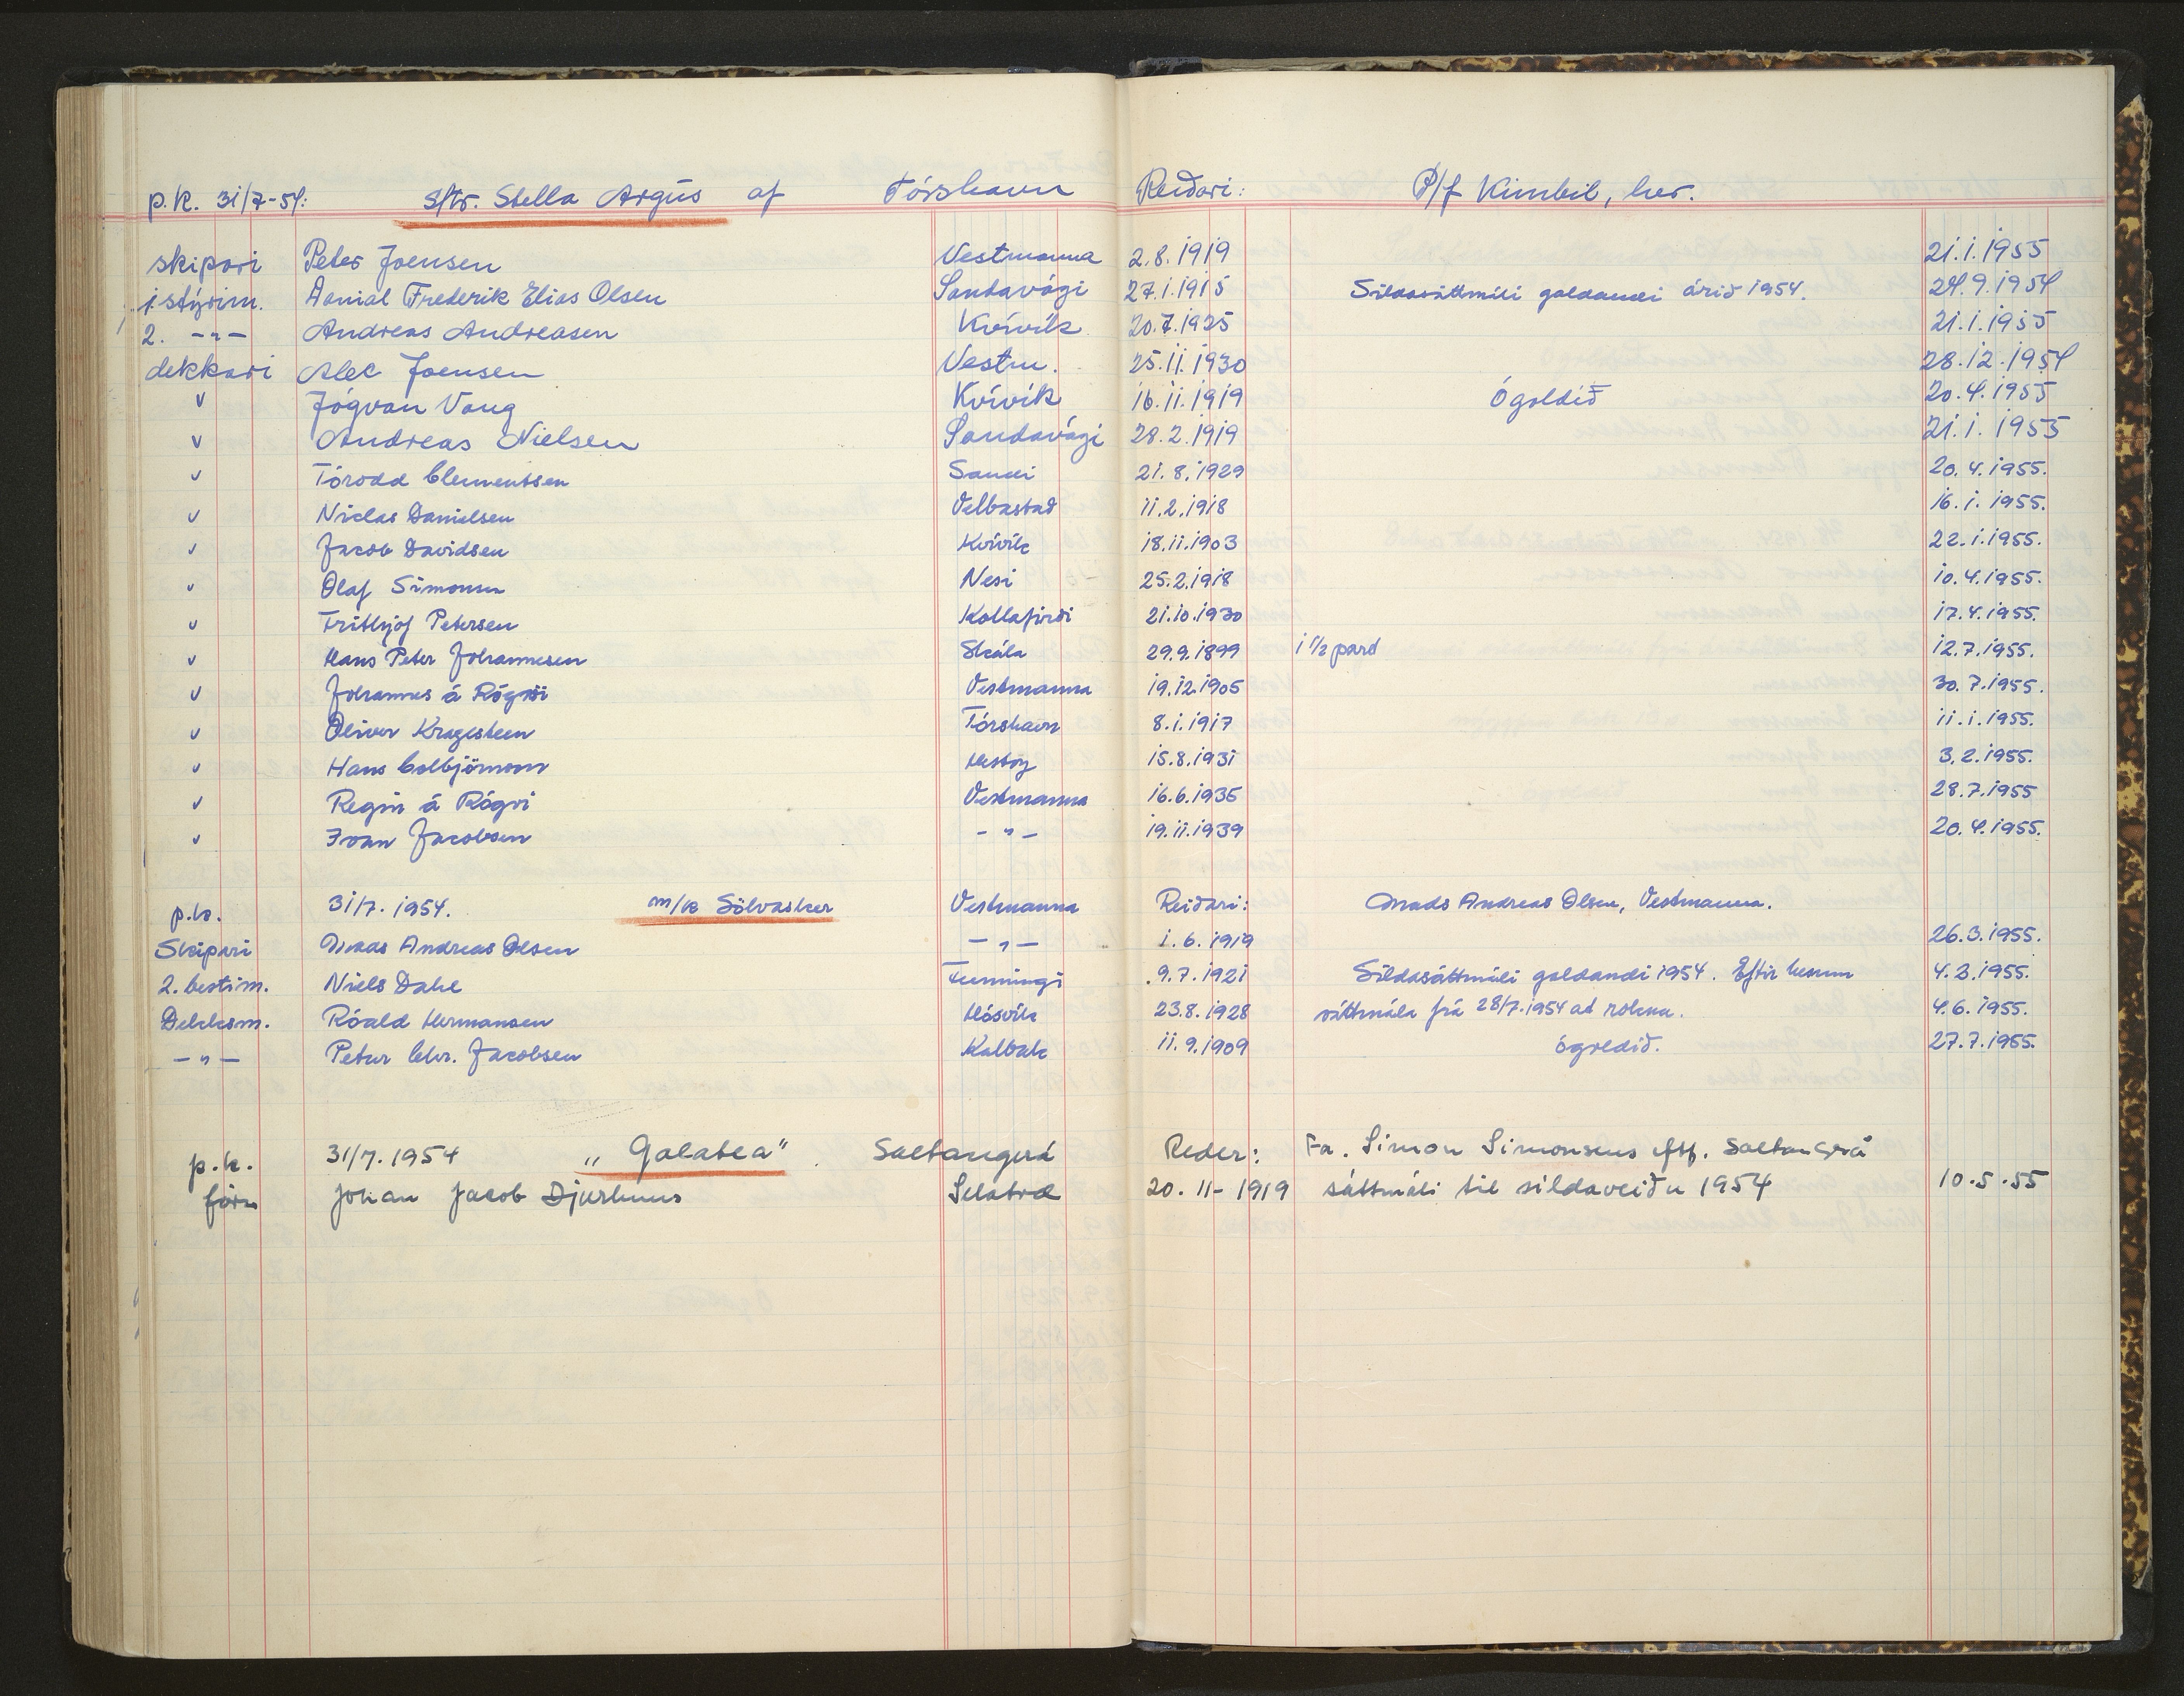 p.k. 31/7-54: S/tr. Stella Argus af Tórshavn Reiðari: P/f Kimbil, her.
skipari Peter Joensen Vestmanna 2.8.1919 21.1.1955
1. stýrim. Danial Frederik Elias Olsen Sandavági 27.1.1915 Sildasáttmáli galdandi árið 1954. 24.9.1954
2. -"- Andreas Andreasen Kvívík 20.7.1925 21.1.1955
dekkari Alec Joensen Vestm. 25.11.1930 28.12.1954
v Jógvan Vang Kvívík 16.11.1919 Ógoldið 20.4.1955
v Andreas Nielsen Sandavági 28.2.1919 21.1.1955
v Tórodd Clementsen Sandi 21.8.1929 20.4.1955.
v Niclas Danielsen Velbastað 11.2.1918 16.1.1955.
v Jacob Davidsen Kvívík 18.11.1903 22.1.1955.
v Olaf Simonsen Nesi 25.2.1918 10.4.1955.
v Frithjof Petersen Kollafirði 21.10.1930 17.4.1955.
v Hans Peter Johannesen Skála 29.9.1899 1 1/2 pard 12.7.1955.
v Johannes á Rógvi Vestmanna 19.12.1905 30.7.1955.
v Oliver Kragesteen Tórshavn 8.1.1917 11.1.1955.
v Hans Colbjörnsen Hestoy 15.8.1931 3.2.1955.
v Regin á Rógvi Vestmanna 16.6.1935 28.7.1955
v Ivan Jacobsen -"- 19.11.1939 20.4.1955.
p.k. 31/7. 1954. m/k Sólvasker Vestmanna Reiðari: Mads Andreas Olsen, Vestmanna.
Skipari Mads Andreas Olsen -"- 1.6.1919 26.3.1955.
2. bestim. Niels Dahl Funningi 9.7.1921 Sildasáttmáli galdandi 1954. Eftir hesum 4.3.1955.
Dekksm. Róald Hermansen Hósvík 23.8.1928 sáttmála frá 28/7.1954 at rokna. 4.6.1955.
-"- Petur Chr. Jacobsen Kalbak 11.9.1909 ógoldið. 27.7.1955.
p.k. 31/7. 1954 "Galatea" Saltangerá Reder: Fa. Simon Simonsens eftf. Saltangerá
förn Johan Jacob Djurhuus Selatrað 20. 11- 1919 sáttmáli til sildaveiðu 1954 10.5.55